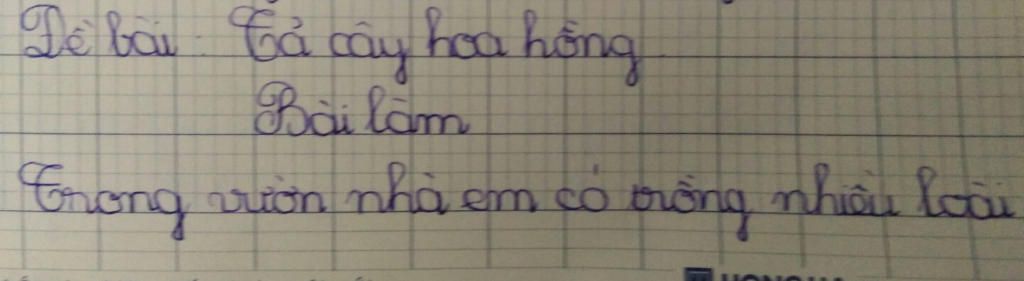 Đề bài: Tả cây hoa hồng
Bài làm
Trong vườn nhà em có trồng nhiều loài